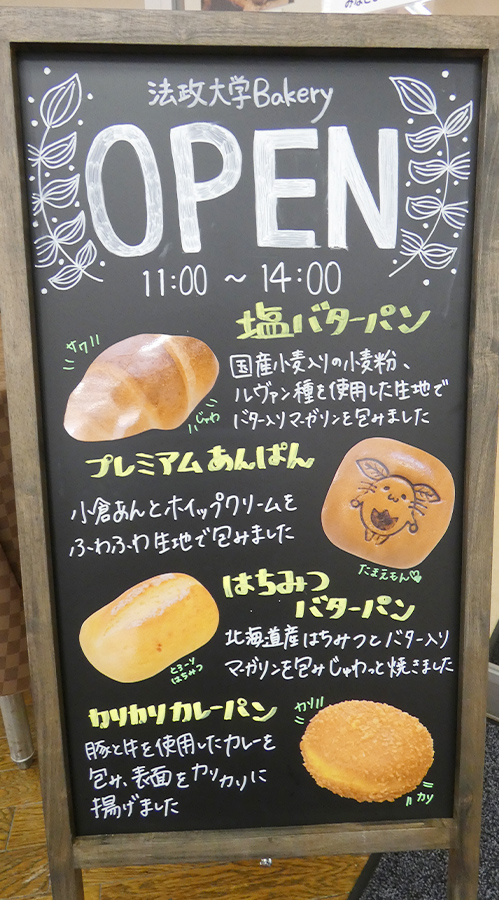 法政大学Bakery
OPEN
11:00 ～ 14:00
塩バターパン
国産小麦入りの小麦粉、
ルヴァン種を使用した生地で
バター入りマーガリンを包みました
じゅわ
プレミアムあんぱん
小倉あんとホイップクリームを
ふわふわ生地で包みました
たまえもん♡
はちみつ
バターパン
北海道産はちみつとバター入り
マーガリンを包みじゅわっと焼きました
とろーり
はちみつ
カリカリカレーパン
カリ
豚と牛を使用したカレーを
包み、表面をカリカリに
揚げました
カリ